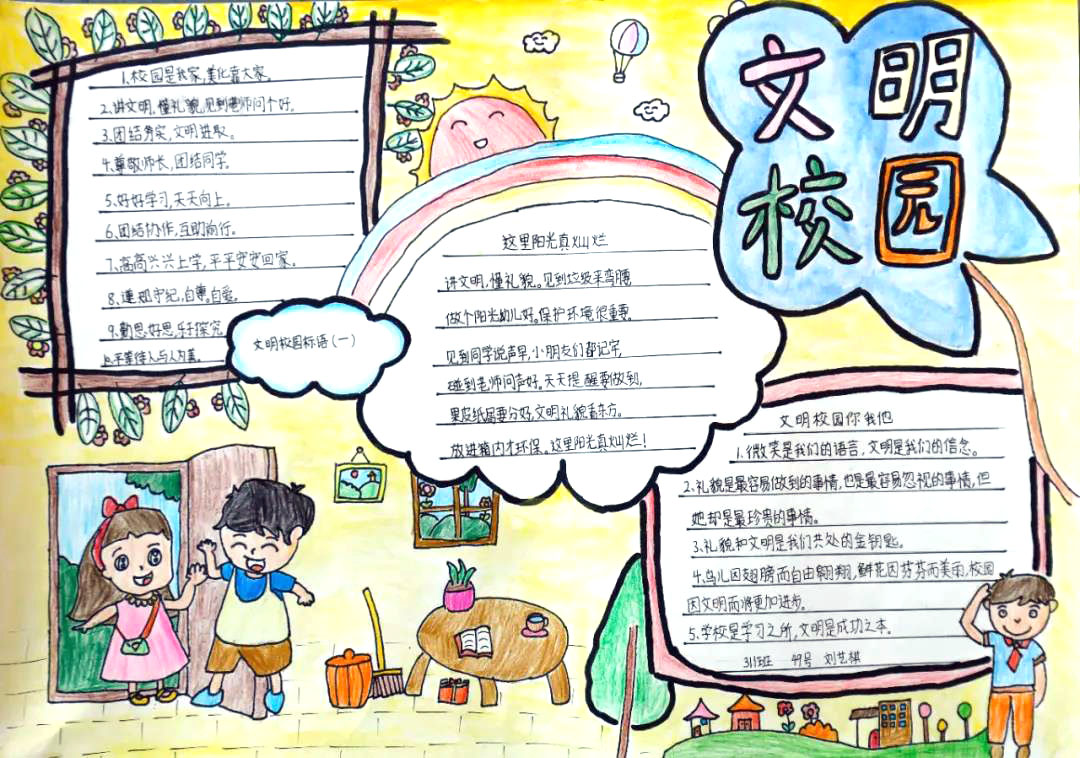 文明
校园
1.校园是我家,美化靠大家。
2.讲文明,懂礼貌,见到老师问个好。
3.团结务实,文明进取。
4.尊敬师长,团结同学。
5.好好学习,天天向上。
6.团结协作,互助前行。
7.高高兴兴上学,平平安安回家。
8.遵规守纪,自尊自爱。
9.勤思好思,乐于探究
上平等待人与人为善。
文明校园标语(一)
这里阳光真灿烂
讲文明,懂礼貌。见到垃圾来弯腰
做个阳光幼儿好。保护环境很重要。
见到同学说声早,小朋友们都记牢,
碰到老师问声好。天天提醒要做到,
果皮纸屑要分好,文明礼貌
放进箱内才环保。这里阳光真灿烂!
文明校园你我他
1.微笑是我们的语言,文明是我们的信念。
2.礼貌是最容易做到的事情,也是最容易忽视的事情,但
她却是最珍贵的事情。
3.礼貌和文明是我们共处的金钥匙。
4.鸟儿因翅膀而自由翱翔,鲜花因芬芳而美丽,校园
因文明而将更加进步。
5.学校是学习之所,文明是成功之本。
311班 49号 刘艺祺